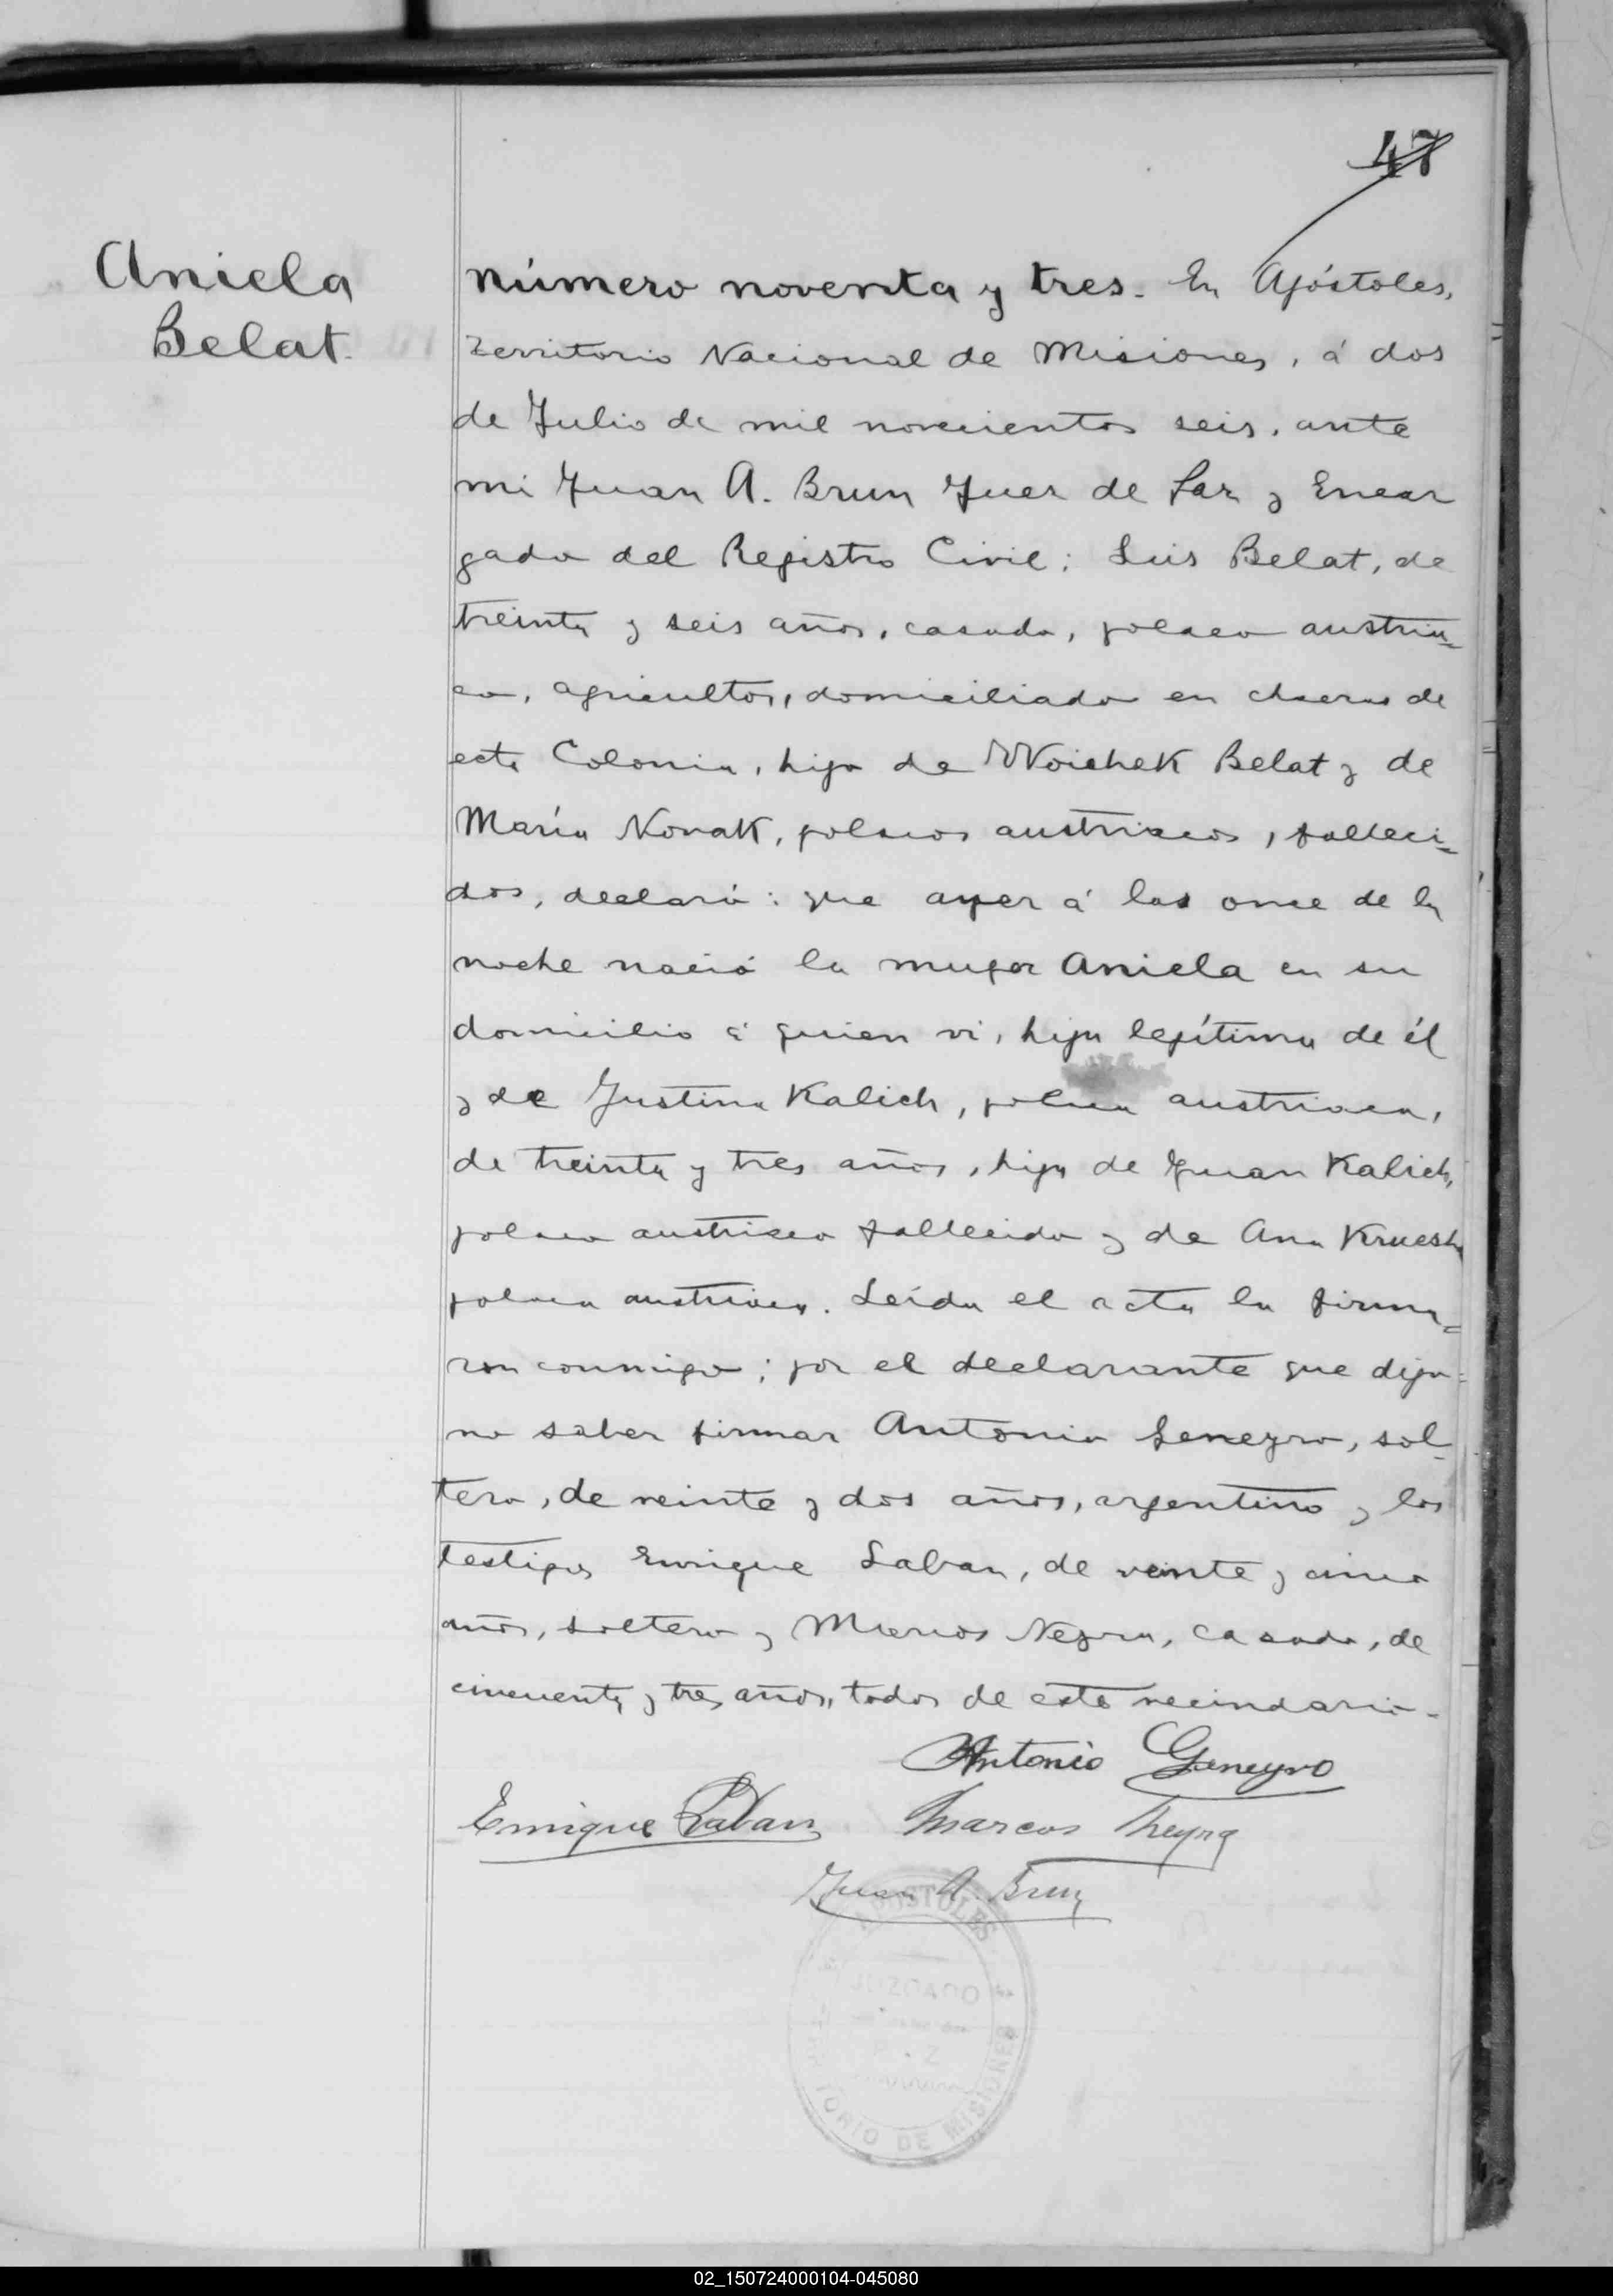 47
Aniela
Belat.
Número noventa y tres. En Apóstoles,
Territorio Nacional de Misiones, á dos
de Julio de mil novecientos seis, ante
mi Juan A. Brun Juez de Paz y Encar
gado del Registro Civil; Luis Belat, de
treinta y seis años, casado, polaco austria=
co, agricultor, domiciliado en chacras de
esta Colonia, hijo de Woichek Belat y de
María Novak, polacos austriacos, falleci=
dos, declaró: que ayer á las once de la
noche nació la mujer Aniela en su
domicilio á quien vi, hija legítima de él
y de Justina Kalich, polaca austriaca,
de treinta y tres años, hija de Juan Kalich,
polaco austriaco fallecido y de Ana
polaca austriaca. Leída el acta la firma=
ron conmigo; por el declarante que dijo
no saber firmar Antonio Geneyro, sol-
tero, de veinte y dos años, argentino y los
testigos Enrique Laban, de veinte y cinco
años, soltero y Marcos Neyra, casado, de
cincuenta y tres años, todos de este vecindario.-
Antonio Geneyro
Enrique Laban Marcos Neyra
Juan A. Brun
APOSTOLES
JUZGADO
P. Z
TERRITORIO DE MISIONES
02_150724000104-045080